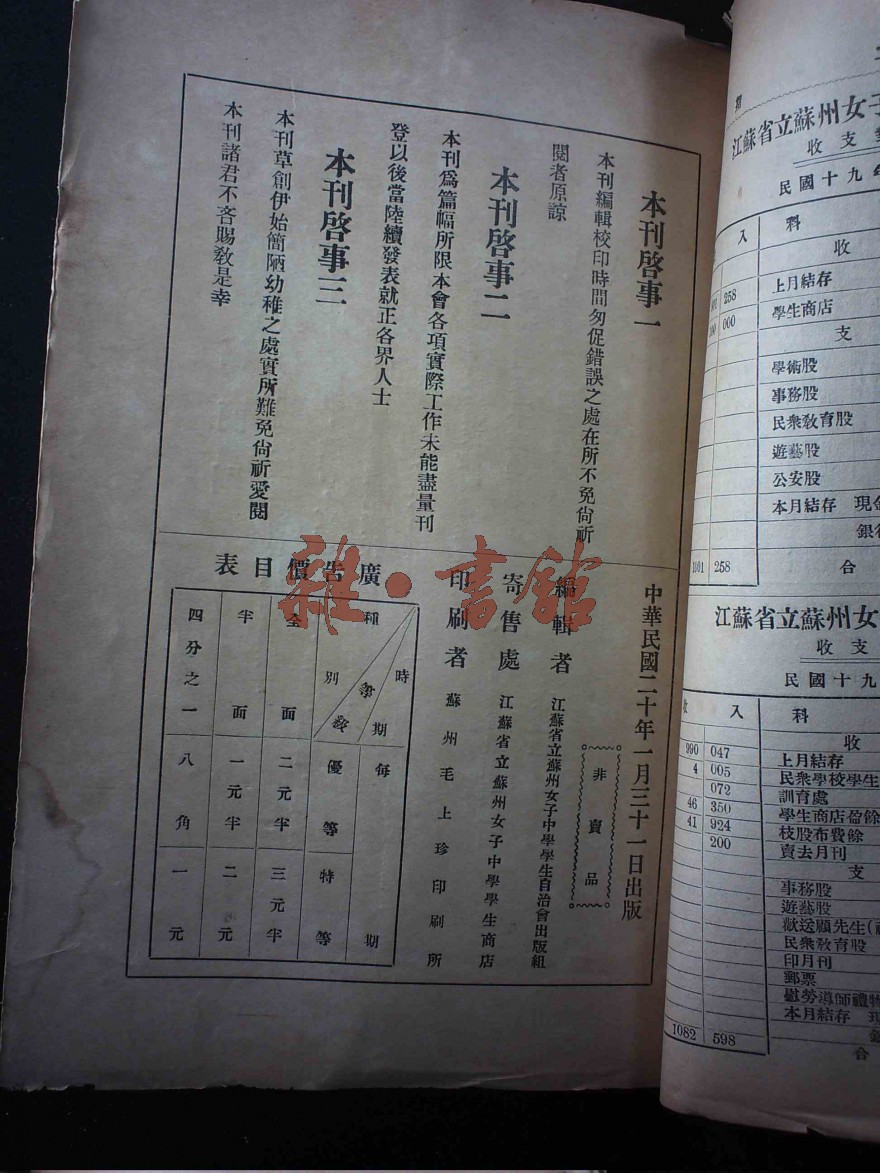 本刊啓事一
本刊編輯校印時間匆促錯誤之處在所不免尙祈
閱者原諒
本刊啓事二
本刊爲篇幅所限本會各項實際工作未能盡量刊
登以後當陸續發表就正各界人士
本刊啓事三
本刊草創伊始簡陋幼稚之處實所難免尙祈愛閱
本刊諸君不吝賜敎是幸
中華民國二十年一月三十一日出版
非賣品
編輯者 江蘇省立蘇州女子中學學生自治會出版組
寄售處 江蘇省立蘇州女子中學學生商店
印刷者 蘇州毛上珍印刷所
廣告價目表
時期 等級 種別
每期
優等 特等
全面 二元半 三元半
半面 一元半 二元
四分之一 八角 一元
雜·書館
期
江蘇省立蘇州女子
收支
民國十九年
入 科
收
258 上月結存
000 學生商店
支
學術股
事務股
民衆敎育股
遊藝股
公安股
本月結存 現金
銀行
1101 258 合
江蘇省立蘇州女
收支
民國十九
收 入 科
收
990 047 上月結存
4 005 民衆學校學生
072 訓育處
46 350 學生商店
41 924 枝股布費餘
200 賣去月刊
支
事務股
遊藝股
歡送顧先生
民衆敎育股
印月刊
郵票
慰勞導師禮物
本月結存
1082 598 合